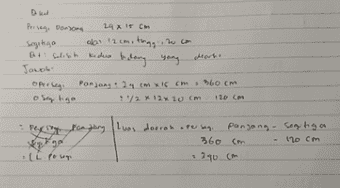 Diket
Perseg. Panjang 24 x 15 cm
Segitiga alas 12 cm, tinggi, 20 cm
Dit : Selisih kedua bidang yang diarsir
Jawab:
Persegi Panjang : 24 cm x 15 cm = 360 cm
Segitiga : 1/2 x 12 x 20 cm = 120 cm
: Persegi Panjang | Luas daerah = Persegi Panjang - Segitiga
Segitiga 360 cm - 120 cm
: [L Persegi = 240 cm